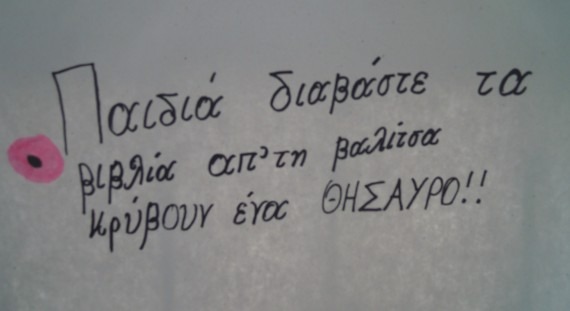 Παιδιά διαβάστε τα
βιβλία απ' τη βαλίτσα
κρύβουν ένας ΘΗΣΑΥΡΟ!!